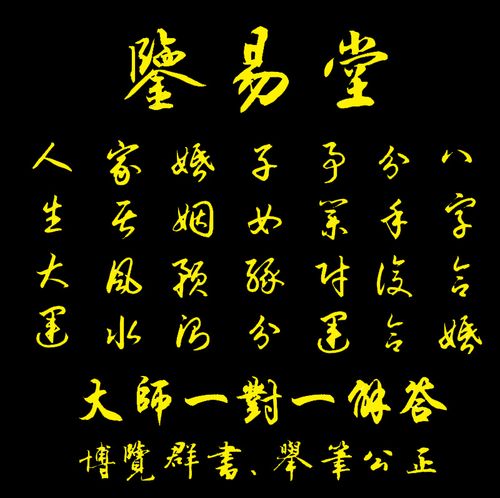 鑒易堂
人生大運
家居風水
婚姻預測
子女緣分
事業財運
分手復合
八字合婚
大師一對一解答
博覽群書、舉筆公正